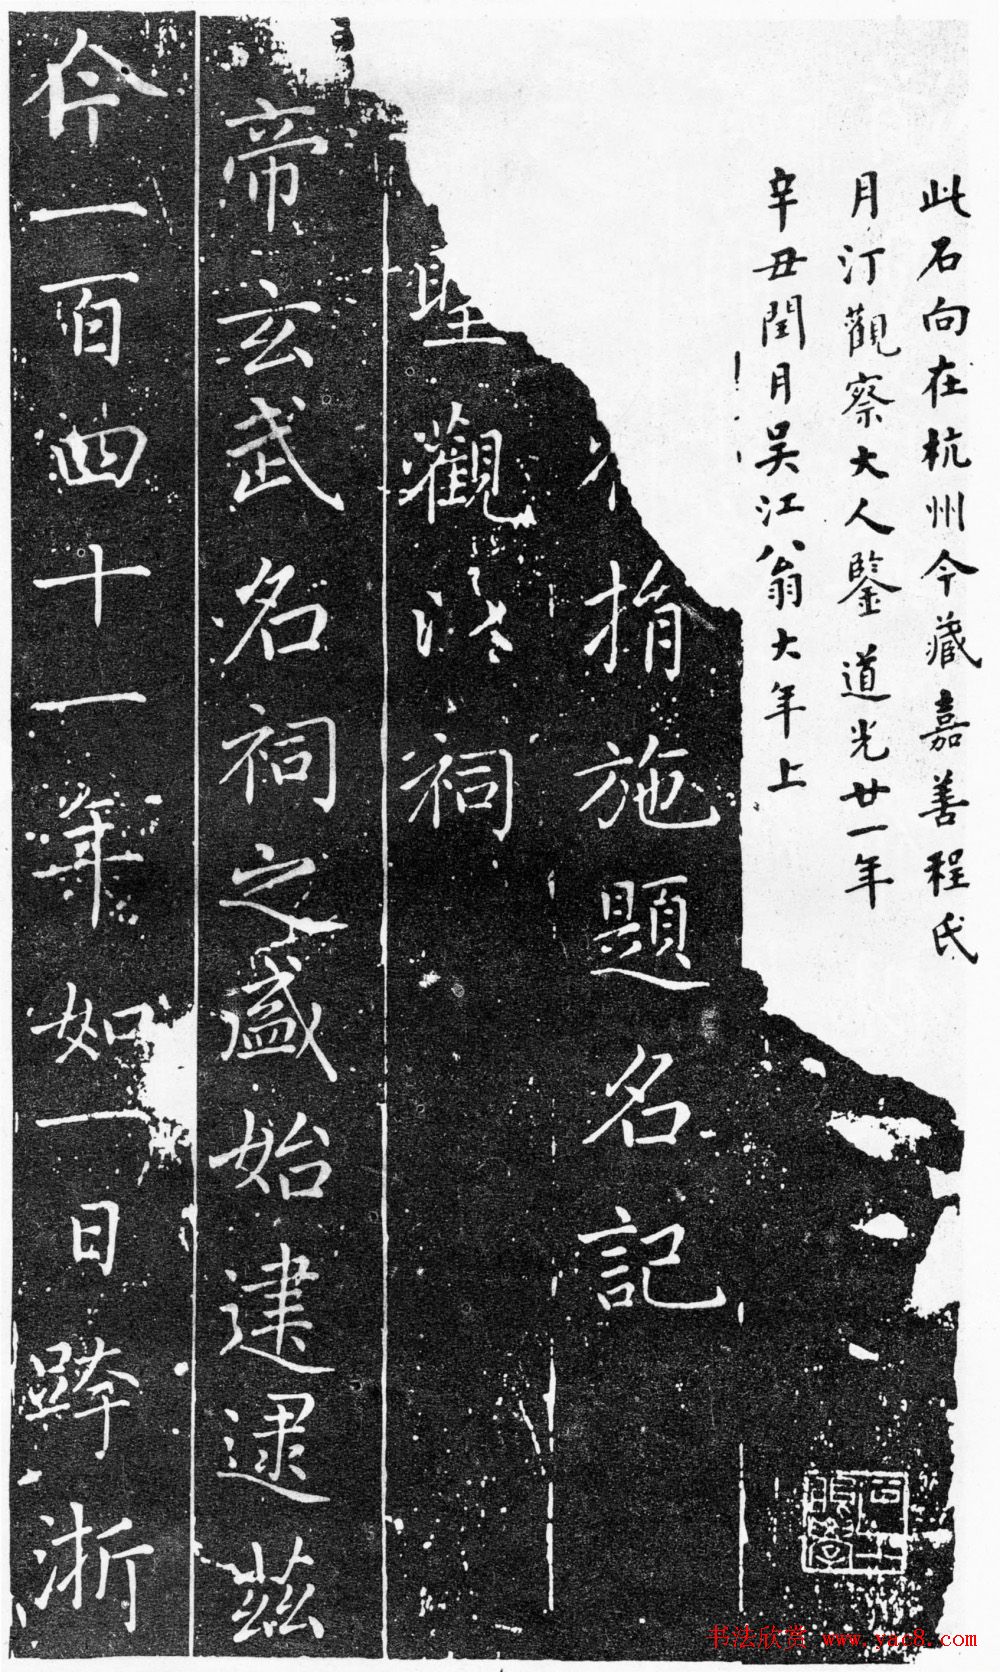 此石向在杭州今藏嘉善程氏
月汀觀察大人鑒道光廿一年
辛丑閏月吴江翁大年上
捐施題名記
聖觀祠
帝玄武名祠之盛始建逮茲
今一百四十一年如一日跨浙
书法欣赏 www.yac8.com